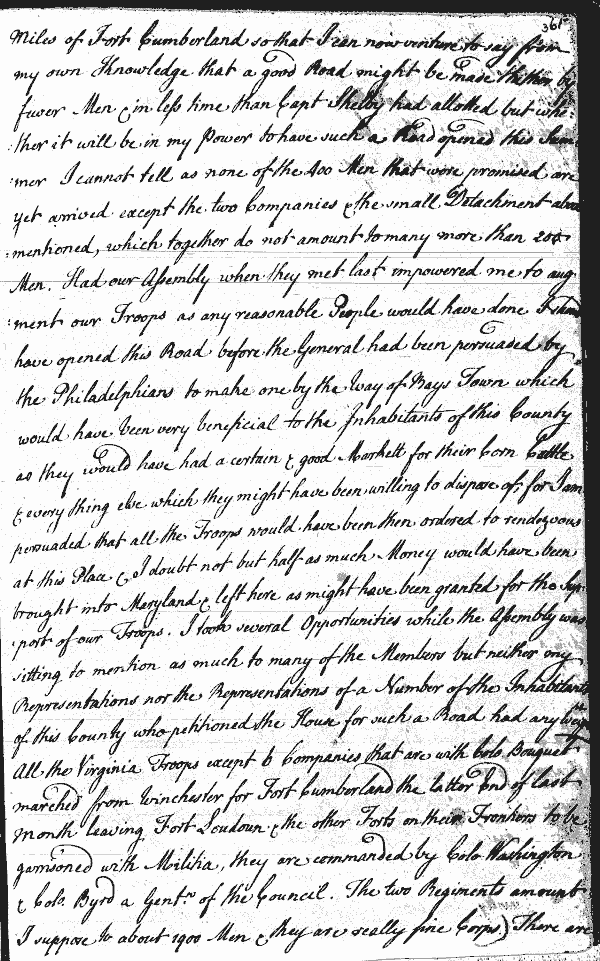 361
Miles of Fort Cumberland so that I can now venture to say from
my own Knowledge that a good Road might be made thither by
fewer Men & in less time than Capt Shelby had allotted but whe:
ther it will be in my Power to have such a Road opened this Sum
:mer I cannot tell as none of the 400 Men that were promised are
yet arrived except the two Companies & the small Detachment above
:mentioned, which together do not amount to many more than 200
Men. Had our Assembly when they met last impowered me to aug
:ment our Troops as any reasonable People would have done I shoud
have opened this Road before the General had been persuaded by
the Philadelphians to make one by the Way of Rays Town which
would have been very beneficial to the Inhabitants of this County
as they would have had a certain & good Markett for their Corn Cattle
& every thing else which they might have been willing to dispose of; for I am
persuaded that all the Troops would have been then ordered to rendezvous
at this Place & I doubt not but half as much Money would have been
brought into Maryland & left here as might have been granted for the Sup
:port of our Troops. I took several Opportunities while the Assembly was
sitting to mention as much to many of the Members but neither my
Representations nor the Representations of a Number of the Inhabitants
of this County who petitioned the House for such a Road had any Weight
All the Virginia Troops except 6 Companies that are with Colo. Bouquet
marched from Winchester for Fort Cumberland the latter End of last
month leaving Fort Loudoun & the other Forts on their Frontiers to be
garrisoned with Militia, they are commanded by Colo. Washington
& Colo. Byrd a Gentn. of the Council. The two Regiments amount
I suppose to about 1900 Men & they are really fine Corps) There are